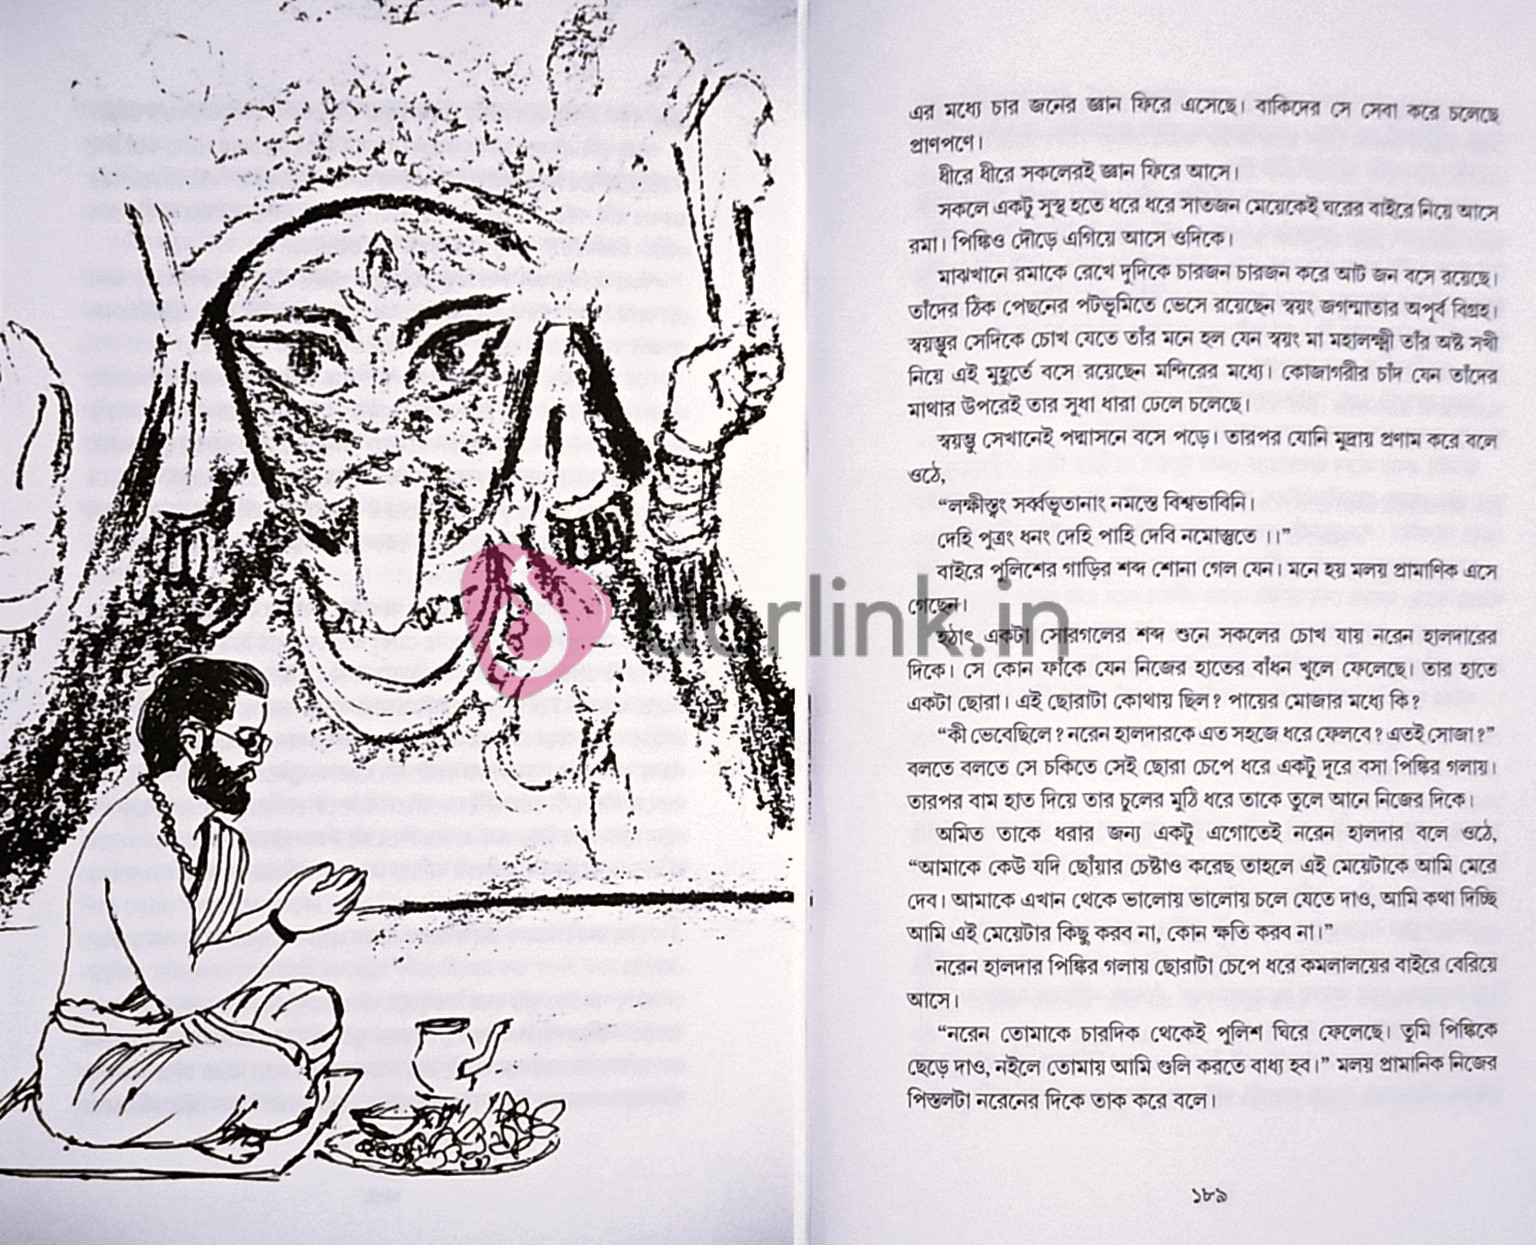 এর মধ্যে চার জনের জ্ঞান ফিরে এসেছে। বাকিদের সে সেবা করে চলেছে
প্রাণপণে।
ধীরে ধীরে সকলেরই জ্ঞান ফিরে আসে।
সকলে একটু সুস্থ হতে ধরে ধরে সাতজন মেয়েকেই ঘরের বাইরে নিয়ে আসে
রমা। পিঙ্কিও দৌড়ে এগিয়ে আসে ওদিকে।
মাঝখানে রমাকে রেখে দুদিকে চারজন চারজন করে আট জন বসে রয়েছে।
তাঁদের ঠিক পেছনের পটভূমিতে ভেসে রয়েছেন স্বয়ং জগন্মাতার অপূর্ব বিগ্রহ।
স্বয়ম্ভূর সেদিকে চোখ যেতে তাঁর মনে হল যেন স্বয়ং মা মহালক্ষ্মী তাঁর অষ্ট সখী
নিয়ে এই মুহূর্তে বসে রয়েছেন মন্দিরের মধ্যে। কোজাগরীর চাঁদ যেন তাঁদের
মাথার উপরেই তার সুধা ধারা ঢেলে চলেছে।
স্বয়ম্ভু সেখানেই পদ্মাসনে বসে পড়ে। তারপর যোনি মুদ্রায় প্রণাম করে বলে
ওঠে,
“লক্ষীস্ত্বং সর্ব্বভূতানাং নমস্তে বিশ্বভাবিনি।
দেহি পুত্রং ধনং দেহি পাহি দেবি নমোস্তুতে ।।”
বাইরে পুলিশের গাড়ির শব্দ শোনা গেল যেন। মনে হয় মলয় প্রামাণিক এসে
গেছেন।
হঠাৎ একটা সোরগলের শব্দ শুনে সকলের চোখ যায় নরেন হালদারের
দিকে। সে কোন ফাঁকে যেন নিজের হাতের বাঁধন খুলে ফেলেছে। তার হাতে
একটা ছোরা। এই ছোরাটা কোথায় ছিল? পায়ের মোজার মধ্যে কি?
“কী ভেবেছিলে? নরেন হালদারকে এত সহজে ধরে ফেলবে? এতই সোজা?”
বলতে বলতে সে চকিতে সেই ছোরা চেপে ধরে একটু দূরে বসা পিঙ্কির গলায়।
তারপর বাম হাত দিয়ে তার চুলের মুঠি ধরে তাকে তুলে আনে নিজের দিকে।
অমিত তাকে ধরার জন্য একটু এগোতেই নরেন হালদার বলে ওঠে,
“আমাকে কেউ যদি ছোঁয়ার চেষ্টাও করেছ তাহলে এই মেয়েটাকে আমি মেরে
দেব। আমাকে এখান থেকে ভালোয় ভালোয় চলে যেতে দাও, আমি কথা দিচ্ছি
আমি এই মেয়েটার কিছু করব না, কোন ক্ষতি করব না।”
নরেন হালদার পিঙ্কির গলায় ছোরাটা চেপে ধরে কমলালয়ের বাইরে বেরিয়ে
আসে।
“নরেন তোমাকে চারদিক থেকেই পুলিশ ঘিরে ফেলেছে। তুমি পিঙ্কিকে
ছেড়ে দাও, নইলে তোমায় আমি গুলি করতে বাধ্য হব।” মলয় প্রামানিক নিজের
পিস্তলটা নরেনের দিকে তাক করে বলে।
১৮৯
darlink.in